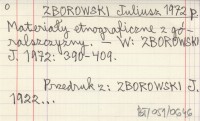 ZBOROWSKI Juliusz 1972 p.
Materiały etnograficzne z gó-
ralszczyzny. — W: ZBOROWSKI
J. 1972: 390-409.
Przedruk z: ZBOROWSKI J.
1922...